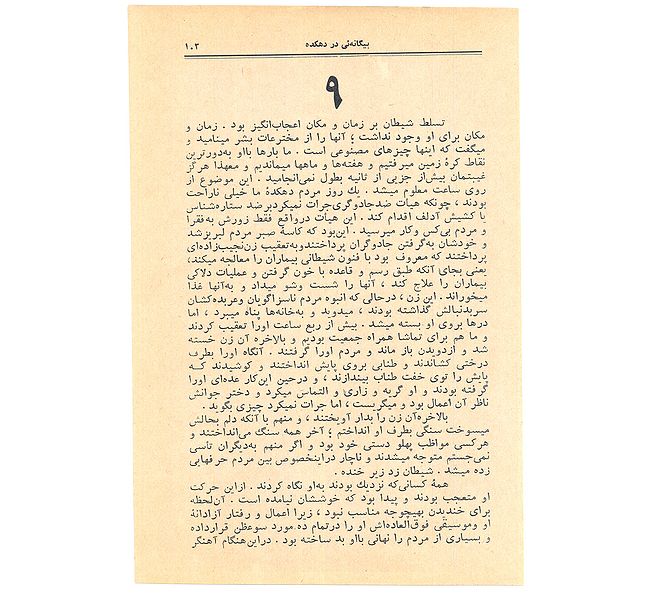 بیگانه‌ئی در دهکده
۱۰۳
۹
تسلط شیطان بر زمان و مکان اعجاب‌انگیز بود . زمان و
مکان برای او وجود نداشت ؛ آنها را از مخترعات بشر مینامید و
میگفت که اینها چیزهای مصنوعی است . ما بارها بااو به‌دورترین
نقاط کرهٔ زمین میرفتیم و هفته‌ها و ماهها میماندیم و معهذا هرگز
غیبتمان بیش‌از جزیی از ثانیه بطول نمی‌انجامید . این موضوع از
روی ساعت معلوم میشد . یك روز مردم دهکدهٔ ما خیلی ناراحت
بودند ، چونکه هیأت ضدجادوگری‌جرات نمیکردبرضد ستاره‌شناس
یا کشیش آدلف اقدام کند . این هیأت درواقع فقط زورش به‌فقرا
و مردم بی‌کس وکار میرسید . این‌بود که کاسهٔ صبر مردم لبریزشد
و خودشان به‌گرفتن جادوگران پرداختندوبه‌تعقیب زن‌نجیب‌زاده‌ای
پرداختند که معروف بود با فنون شیطانی بیماران را معالجه میکند،
یعنی بجای آنکه طبق رسم و قاعده با خون گرفتن و عملیات دلاکی
بیماران را علاج کند ، آنها را شست وشو میداد و به‌آنها غذا
میخوراند . این زن ، درحالی که انبوه مردم ناسزاگویان وعربده‌کشان
سربدنبالش گذاشته بودند ، میدوید و به‌خانه‌ها پناه میبرد ، اما
درها بروی او بسته میشد . بیش از ربع ساعت اورا تعقیب کردند
و ما هم برای تماشا همراه جمعیت بودیم و بالاخره آن زن خسته
شد و ازدویدن باز ماند و مردم اورا گرفتند . آنگاه اورا بطرف
درختی کشاندند و طنابی بروی پایش انداختند و کوشیدند کـه
پایش را توی خفت طناب بیندازند ، و درحین این‌کار عده‌ای اورا
گرفته بودند و او گریه و زاری و التماس میکرد و دختر جوانش
ناظر آن اعمال بود و میگریست ، اما جرات نمیکرد چیزی بگوید .
بالاخره‌آن زن را بدار آویختند ، و منهم با آنکه دلم بحالش
میسوخت سنگی بطرف او انداختم ؛ آخر همه سنگ می‌انداختند و
هرکسی مواظب پهلو دستی خود بود و اگر منهم به‌دیگران تأسی
نمی‌جستم متوجه میشدند و ناچار دراینخصوص بین مردم حرفهایی
زده میشد . شیطان زد زیر خنده .
همهٔ کسانی‌که نزدیك بودند به‌او نگاه کردند . ازاین حرکت
او متعجب بودند و پیدا بود که خوششان نیامده است . آن‌لحظه
برای خندیدن بهیچوجه مناسب نبود ، زیرا اعمال و رفتار آزادانهٔ
او وموسیقی فوق‌العاده‌اش او را درتمام ده مورد سوءظن قرارداده
و بسیاری از مردم را نهانی بااو بد ساخته بود . دراین‌هنگام آهنگر